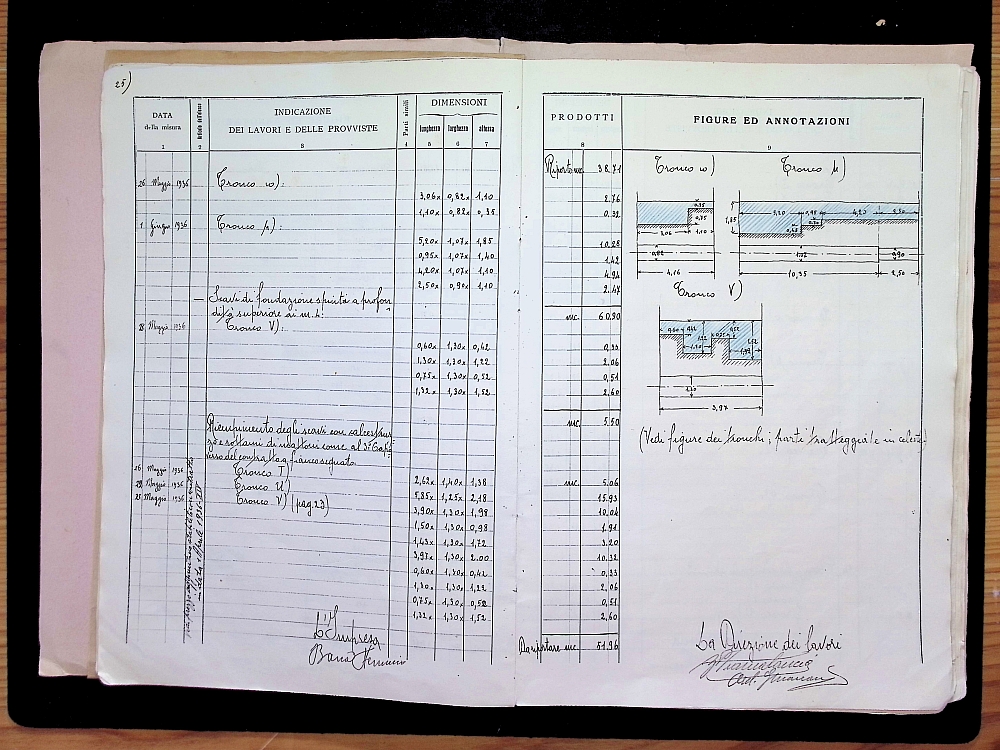 25)
DATA
della misura
INDICAZIONE
DEI LAVORI E DELLE PROVVISTE
Parti simili
DIMENSIONI
lunghezza larghezza altezza
1 2 3 4 5 6 7
26 Maggio 1936 Tronco w):
3,06x 0,82x 1,10
1,10x 0,82x 0,35
1 Giugno 1936
5,20x 1,07x 1,85
0,95x 1,07x 1,40
4,20x 1,07x 1,10
2,50x 0,90x 1,10
Scavi di fondazione spinti a profon
dità superiore ai m. 4:
8 Maggio 1936 Tronco V):
0,60x 1,30x 0,42
1,30x 1,30x 1,22
0,75x 1,30x 0,52
1,32x 1,30x 1,52
Riempimento degli scavi con calcestruz
zo e rottami di mattoni come al 3° Capo
verso del contrattag. fianco segnato
26 Maggio 1936 Tronco T)
2,62x 1,40x 1,38
Maggio 1936 Tronco U)
5,85x 1,25x 2,18
Maggio 1936 Tronco V) (pag. 23)
3,90x 1,30x 1,98
1,50x 1,30x 0,98
1,43x 1,30x 1,72
3,97x 1,30x 2.00
0,60x 1,30x 0,42
1,30x 1,30x 1,22
0,75x 1,30x 0,52
1,32x 1,30x 1,52
L'Impresa
PRODOTTI
FIGURE ED ANNOTAZIONI
8 9
Riporto mc. 38,71
2.76
0,32
10,28
1,42
4,94
2.47
mc. 60.90
0,33
2.06
0,51
2.60
mc. 5.50
mc. 5.06
15.93
10.04
1.91
3.20
10.32
0,33
2,06
0,51
2,60
Da riportare mc. 51.96
Tronco w)
0,35
0,75
3,06 1,10
0,82
4,16
5,20 0,95 4,20 2,50
1,85
0,45
1,07
0,90
10,35 2,50
Tronco V)
0,60 0,42 0,52
1,22 0,75 1,52
1,30 1,32
1,30
3,97
(Vedi figure dei tronchi; parti tratteggiate in celeste)
La Direzione dei lavori